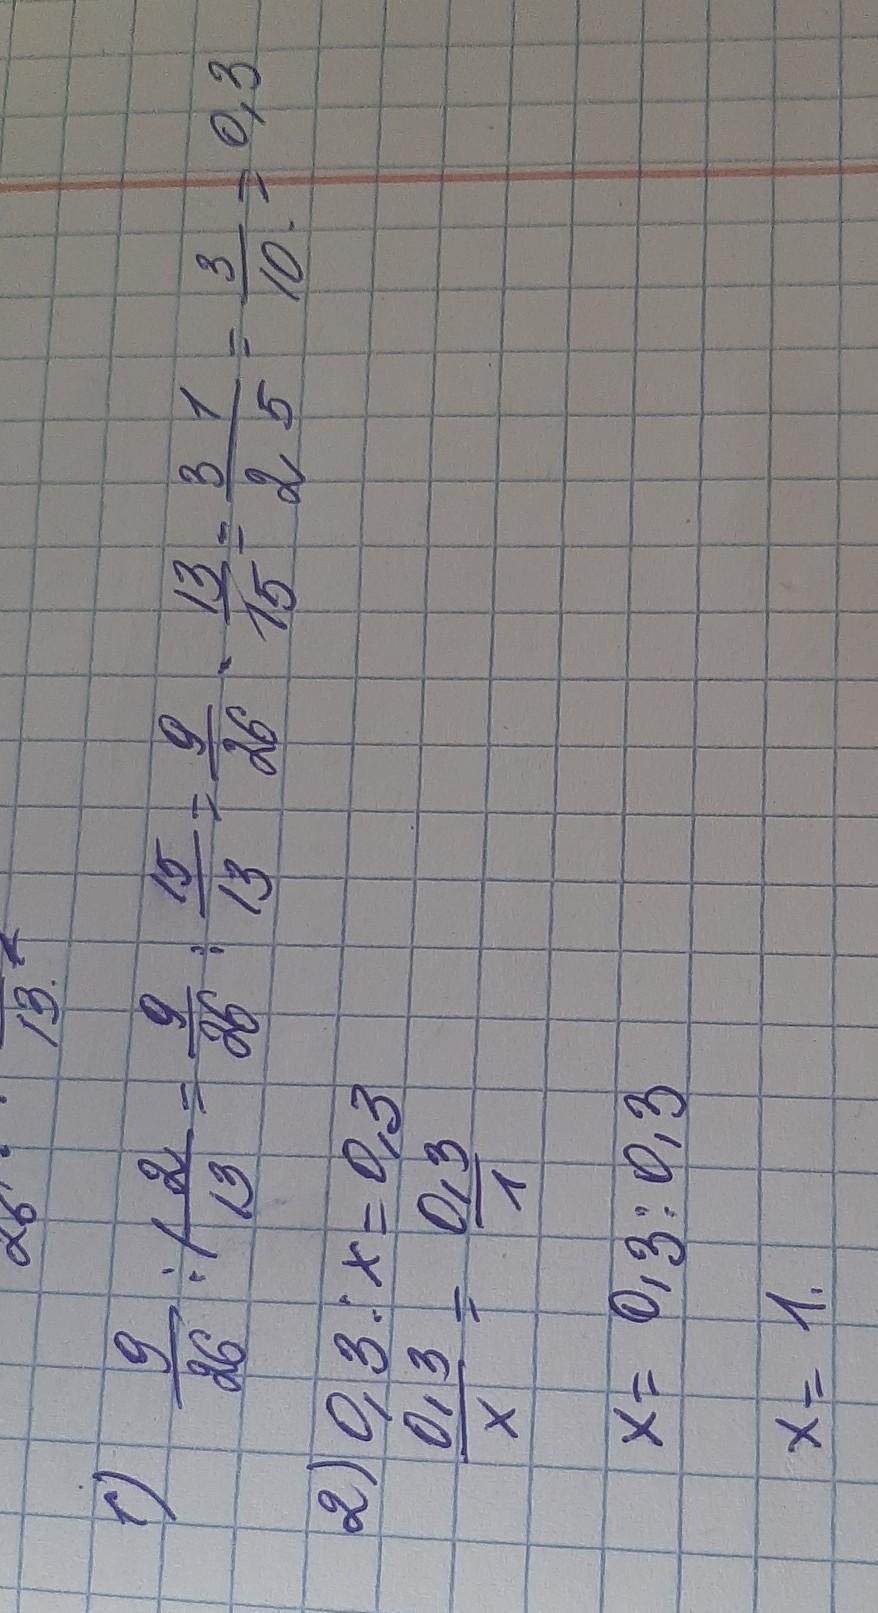 26 : 13
1) 9/26 : 1 2/13 = 9/26 : 15/13 = 9/26 · 13/15 = 3 1/2 5 = 3/10. = 0,3
2) 0,3 : x = 0,3
0,3/x = 0,3/1
x = 0,3 : 0,3
x = 1.